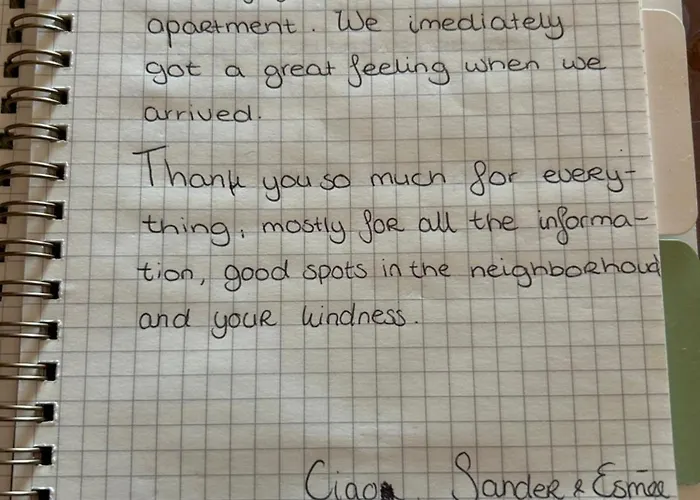 apartment. We imediately
got a great feeling when we
arrived.
Thank you so much for every-
thing, mostly for all the informa-
tion, good spots in the neighborhoud
and your kindness.
Ciao Sander & Esmée